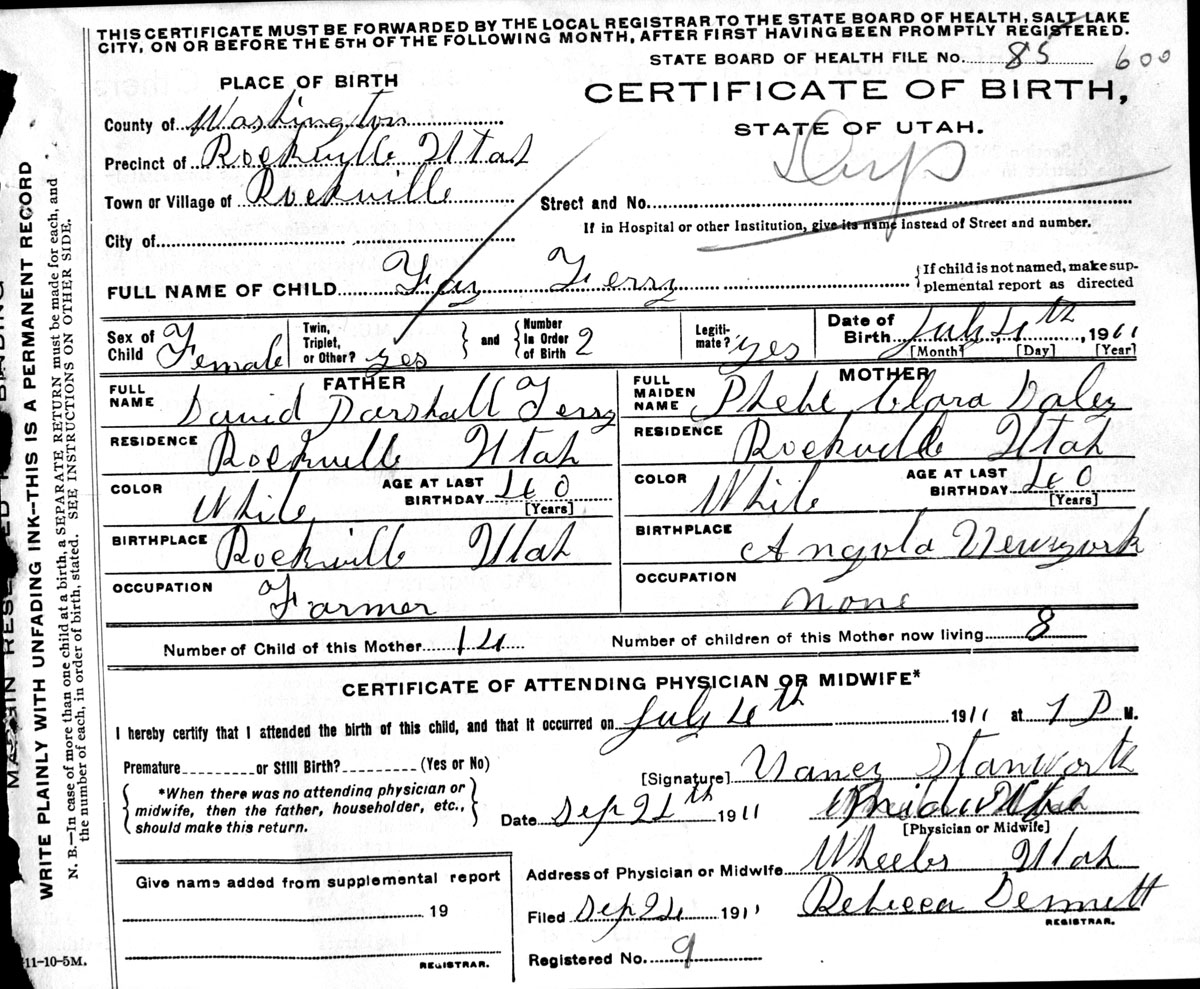 THIS CERTIFICATE MUST BE FORWARDED BY THE LOCAL REGISTRAR TO THE STATE BOARD OF HEALTH, SALT LAKE
CITY, ON OR BEFORE THE 5TH OF THE FOLLOWING MONTH, AFTER FIRST HAVING BEEN PROMPTLY REGISTERED.
STATE BOARD OF HEALTH FILE No. 85 600
PLACE OF BIRTH
CERTIFICATE OF BIRTH,
STATE OF UTAH.
Dup
County of Washington
Precinct of Rockville Utah
Town or Village of Rockville
Street and No.
City of
If in Hospital or other Institution, give its name instead of Street and number.
FULL NAME OF CHILD Fay Terry
{If child is not named, make sup-
plemental report as directed
Sex of Child Female
Twin, Triplet, or Other? yes } and { Number In Order of Birth 2
Legiti-mate? yes
Date of Birth July 4th, 1911
[Month] [Day] [Year]
FATHER
FULL NAME David Darshall Terry
RESIDENCE Rockville Utah
COLOR White
AGE AT LAST BIRTHDAY 40
[Years]
BIRTHPLACE Rockville Utah
OCCUPATION Farmer
MOTHER
FULL MAIDEN NAME Phebe Clara Daley
RESIDENCE Rockville Utah
COLOR White
AGE AT LAST BIRTHDAY 40
[Years]
BIRTHPLACE Angola Newyork
OCCUPATION none
Number of Child of this Mother 14 Number of children of this Mother now living 8
CERTIFICATE OF ATTENDING PHYSICIAN OR MIDWIFE*
I hereby certify that I attended the birth of this child, and that it occurred on July 4th 1911 at 1 P M.
Premature or Still Birth? (Yes or No)
{*When there was no attending physician or
midwife, then the father, householder, etc.,
should make this return.}
[Signature] Nancy Stanworth
Date Sep 24th 1911
[Physician or Midwife]
Address of Physician or Midwife Wheeler Utah
Filed Sep 24 1911 Rebecca Dennett
REGISTRAR.
Registered No. 9
Give name added from supplemental report
19
REGISTRAR.
11-10-5M.
WRITE PLAINLY WITH UNFADING INK—THIS IS A PERMANENT RECORD
N. B.—In case of more than one child at a birth, a SEPARATE RETURN must be made for each, and
the number of each, in order of birth, stated. SEE INSTRUCTIONS ON OTHER SIDE.